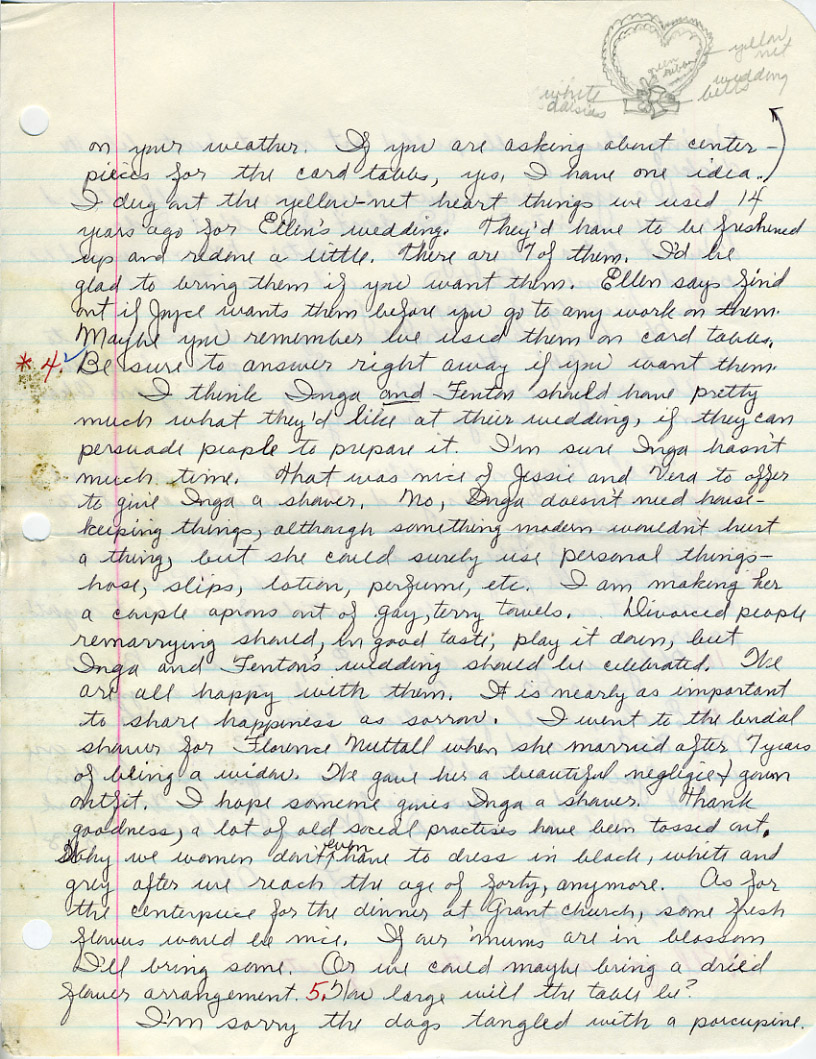 yellow
net
green
ribbon
wedding
bells
white
daisies
on your weather. If you are asking about center-
pieces for the card tables, yes, I have one idea.
I dug out the yellow-net heart things we used 14
years ago for Ellen's wedding. They'd have to be freshened
up and redone a little. There are 7 of them. I'd be
glad to bring them if you want them. Ellen says find
out if Joyce wants them before you go to any work on them.
Maybe you remember we used them on card tables.
* 4. Be sure to answer right away if you want them.
I think Inga and Fenton should have pretty
much what they'd like at their wedding, if they can
persuade people to prepare it. I'm sure Inga hasn't
much time. That was nice of Jessie and Vera to offer
to give Inga a shower. No, Inga doesn't need house-
keeping things, although something modern wouldn't hurt
a thing, but she could surely use personal things-
hose, slips, lotion, perfume, etc. I am making her
a couple aprons out of gay, terry towels. Divorced people
remarrying should, in good taste, play it down, but
Inga and Fenton's wedding should be celebrated. We
are all happy with them. It is nearly as important
to share happiness as sorrow. I went to the bridal
shower for Florence Nuttall when she married after 7 years
of being a widow. We gave her a beautiful negligie & gown
outfit. I hope someone gives Inga a shower. Thank
goodness, a lot of old social practises have been tossed out.
Why we women don't even have to dress in black, white and
grey after we reach the age of forty, anymore. As for
the centerpiece for the dinner at Grant church, some fresh
flowers would be nice. If our 'mums are in blossom
I'll bring some. Or we could maybe bring a dried
flower arrangement. 5. How large will the table be?
I'm sorry the dogs tangled with a porcupine.